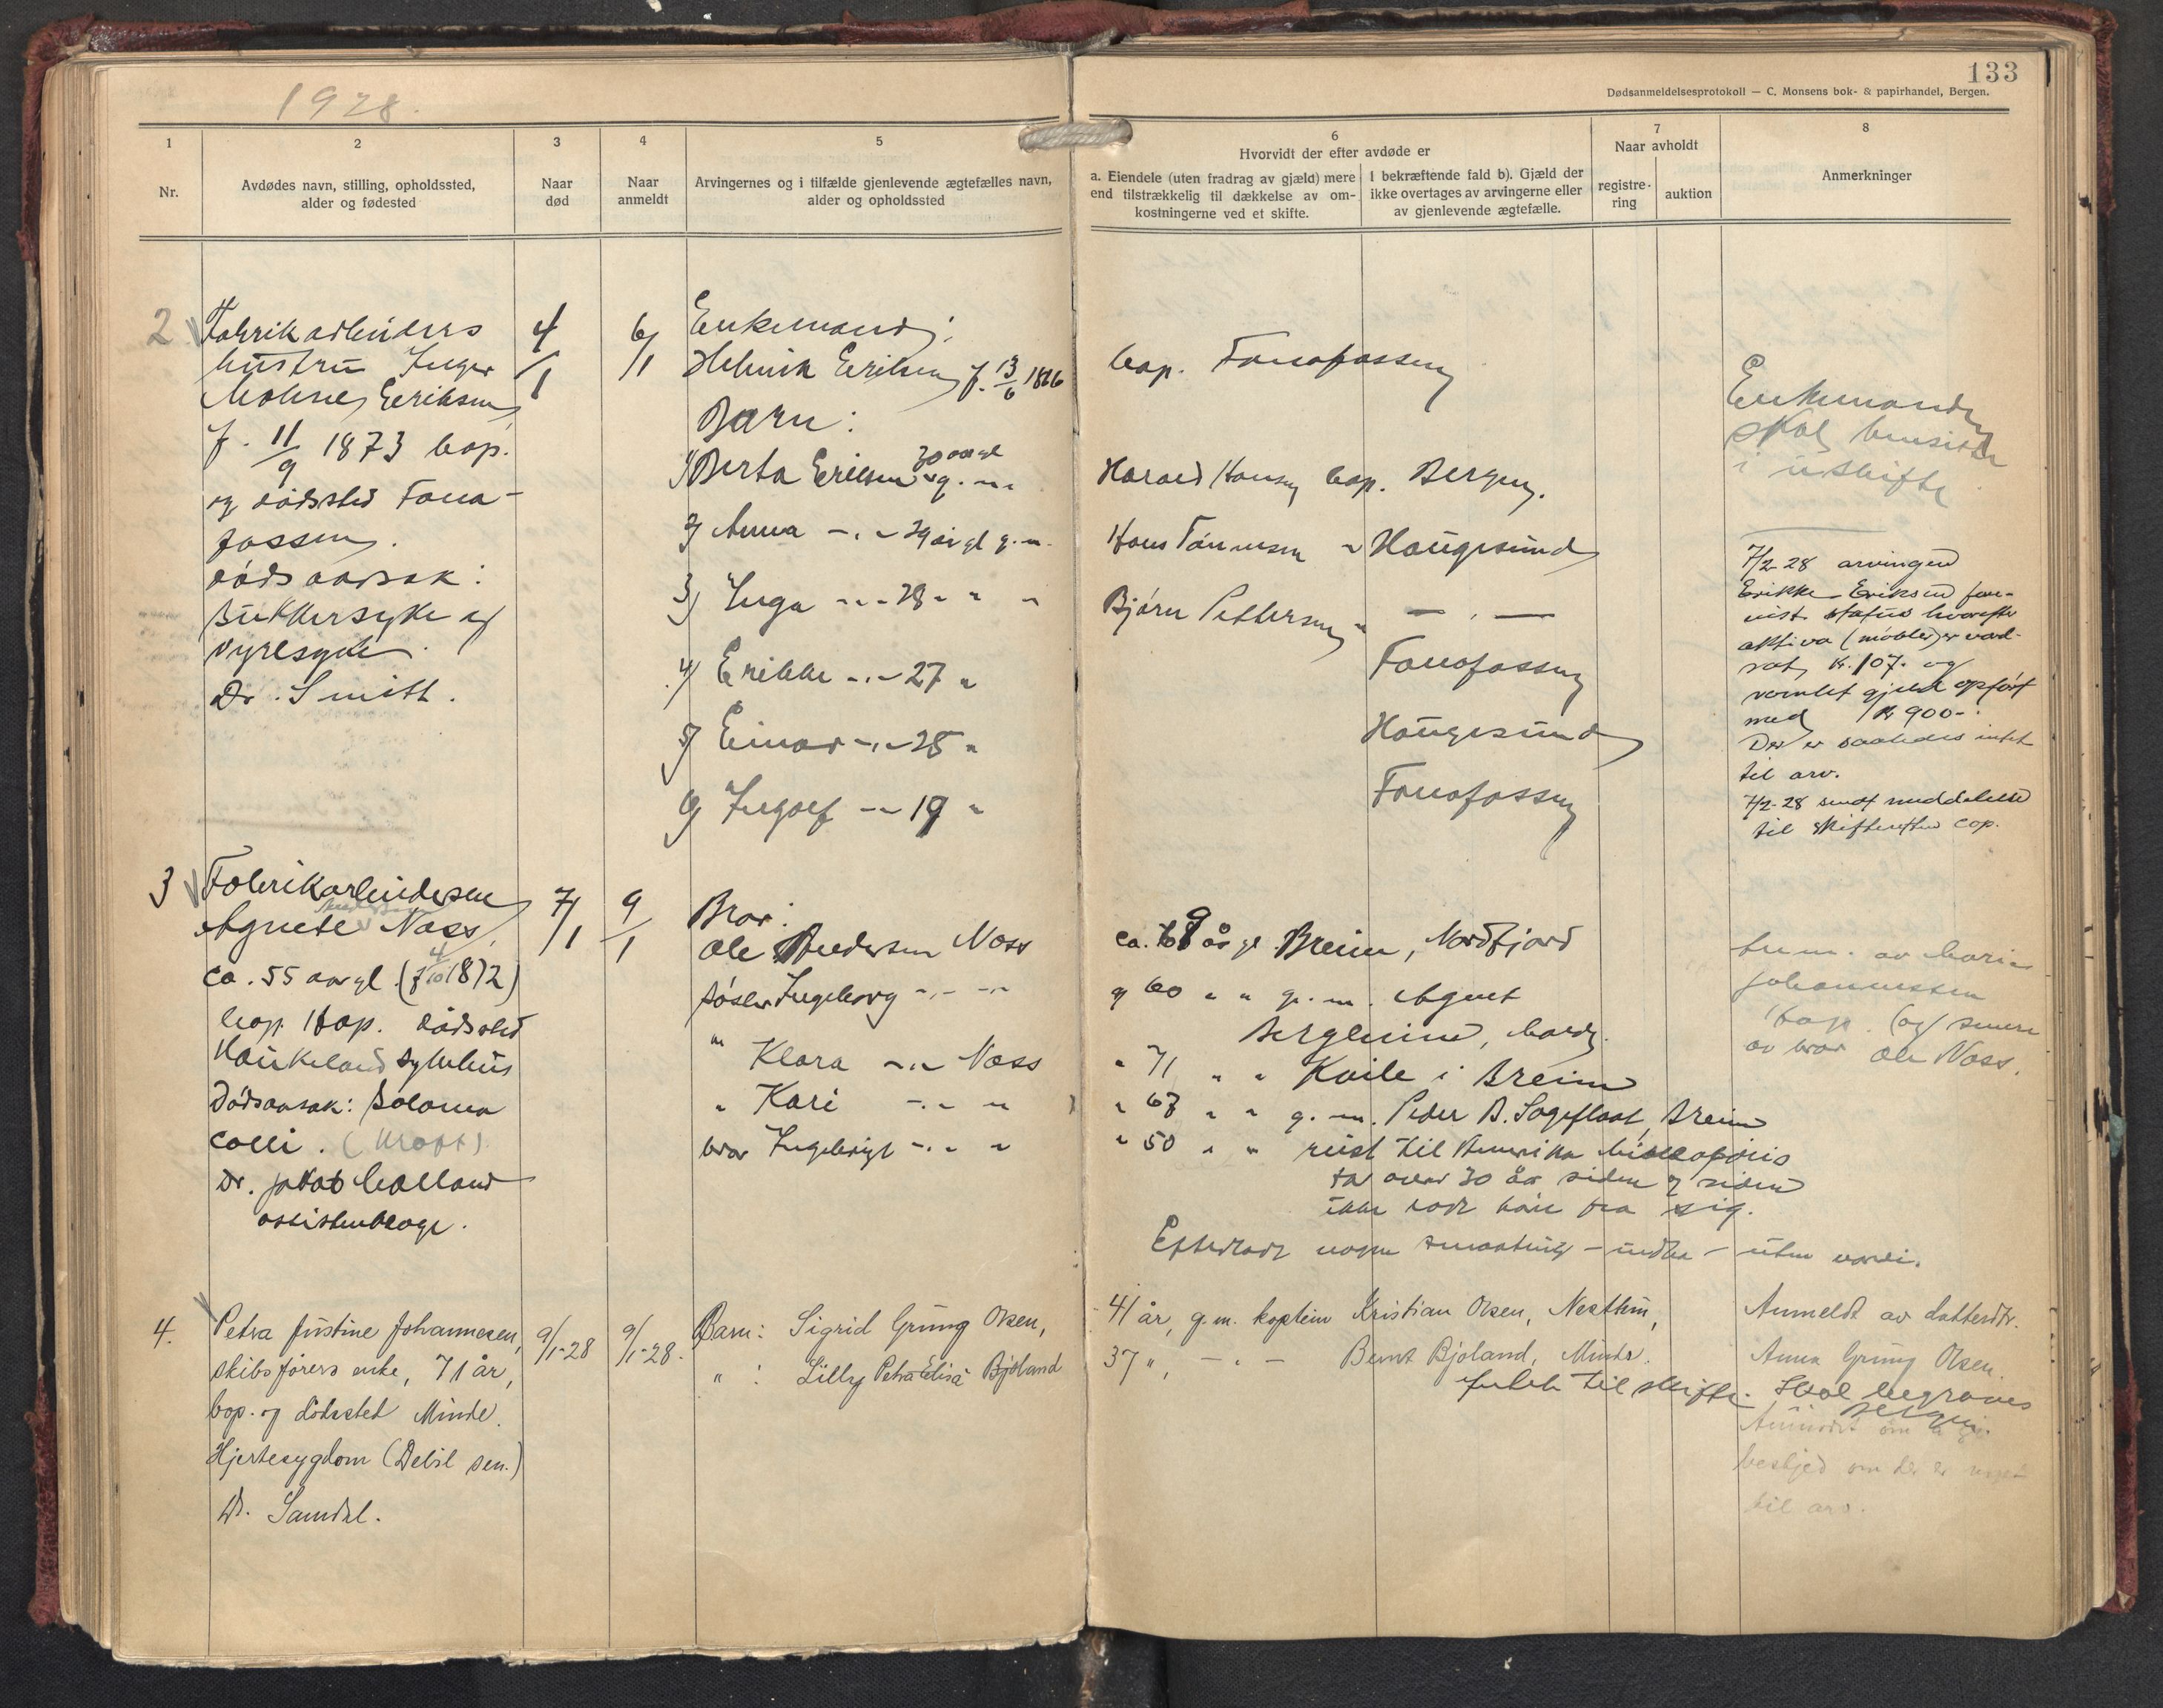 1928.
133
Dødsanmeldelsesprotokoll — C. Monsens bok- & papirhandel, Bergen.
1
2
3
4
5
6
7
8
Nr.
Avdødes navn, stilling, opholdssted,
alder og fødested
Naar
død
Naar
anmeldt
Arvingernes og i tilfælde gjenlevende ægtefælles navn,
alder og opholdssted
Hvorvidt der efter avdøde er
a. Eiendele (uten fradrag av gjæld) mere
end tilstrækkelig til dækkelse av om-
kostningerne ved et skifte.
I bekræftende fald b). Gjæld der
ikke overtages av arvingerne eller
av gjenlevende ægtefælle.
Naar avholdt
registre-
ring
auktion
Anmerkninger
2
Fabrikarbeiders
hustru Inger
Eriksen
f. 11/9 1873 bop.
og dødssted Fana-
fossen.
dødsaarsak:
Sukkersyke og
nyresyke.
Dr. Smitt.
4/1
6/1
Enkemand:
Henrik Eriksen f. 13/6 18
Barn:
1) Berta Eriksen 30 aar gl g. m.
2) Anna -"- 29 år gl g. m.
3) Inga -"- 28 " " "
4) Erikke -"- 27 "
5) Einar -"- 25 "
6) Ingolf -"- 19 "
bop. Fanafossen
Harald Hansen bop. Bergen.
Hans Tønnesen " Haugesund
Bjørn Pettersen " — " —
Fanafossen
Haugesund
Fanafossen
Enkemanden
skal bensitte
i uskifte
7/2-28 arvingen
Erikke Eriksen frem-
vist status hvorefter
aktiva (møbler) er værd-
sat, kr. 107.- og
samlet gjeld opført
med kr 900-.
Der er saaledes intet
til arv.
7/2-28 sendt meddelelse
til skifteretten cop.
3
Fabrikarbeidersken
Andersen
Agnete Næss,
ca. 55 aar gl. (f 4/10 1872)
bop. Hop. dødssted
Haukeland sykehus
Dødsaarsak:
coli. (kræft).
Dr. Jakob Mælland
assistentlæge.
7/1
9/1
Bror:
Ole Andersen Næss
søster Ingeborg -"- -"-
" Klara -"- Næss
" Kari -"- "
bror Ingebrigt -"- "
ca. 69 år gl. Breim, Nordfjord
" 60 " " g. m. Agnet
Bergheim,
" 71 " " Kvile i Breim
" 67 " " g. m. Peder A. Sagefloat, Breim
" 50 " " reist til Amerika
for over 30 år siden og siden
ikke ladt høre fra sig.
Efterladt nogen smaating - indbo - uten værdi.
anm. av Marie
Johannessen
Hop. (og) senere
av bror Ole Næss.
4.
Petra Justine Johannesen,
skibsførers enke, 71 år,
bop. og dødssted Minde.
Hjertesygdom (Debil. sen.)
Dr. Samdal.
9/1-28
9/1-28.
Barn: Sigrid Grung Olsen,
" : Lilly Petra Elisa Bjøland
41 år, g. m. kaptein Kristian Olsen, Nesttun,
37 ", — " — Bernt Bjøland, Minde.
Intet til skifte.
Anmeldt av datterdtr.
Anna Grung Olsen.
Skal begraves
Bergen.
Anmodet om å gi
beskjed om der er noget
til arv.